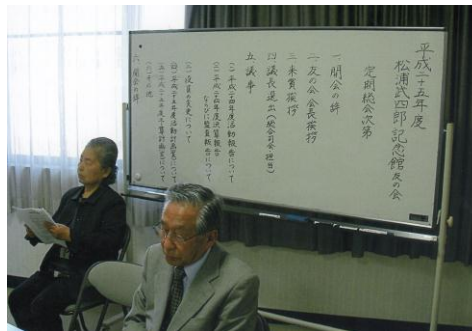 平成二十五年度
松浦武四郎記念館友の会
定期総会次第
一、開会の辞
二、友の会会長挨拶
三、来賓挨拶
四、議長選出（総合司会担当）
五、議事
（一）平成二十四年度活動報告について
（二）平成二十四年度決算報告
ならびに監査報告について
（三）役員の変更について
（四）平成二十五年度活動計画案について
（五）平成二十五年度予算計画案について
（六）その他
六、閉会の辞